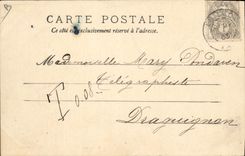 CARTE POSTALE
Ce côté est exclusivement réservé à l'adresse.
Mademoiselle Mary
Télégraphiste
T 0.08
Draguignan